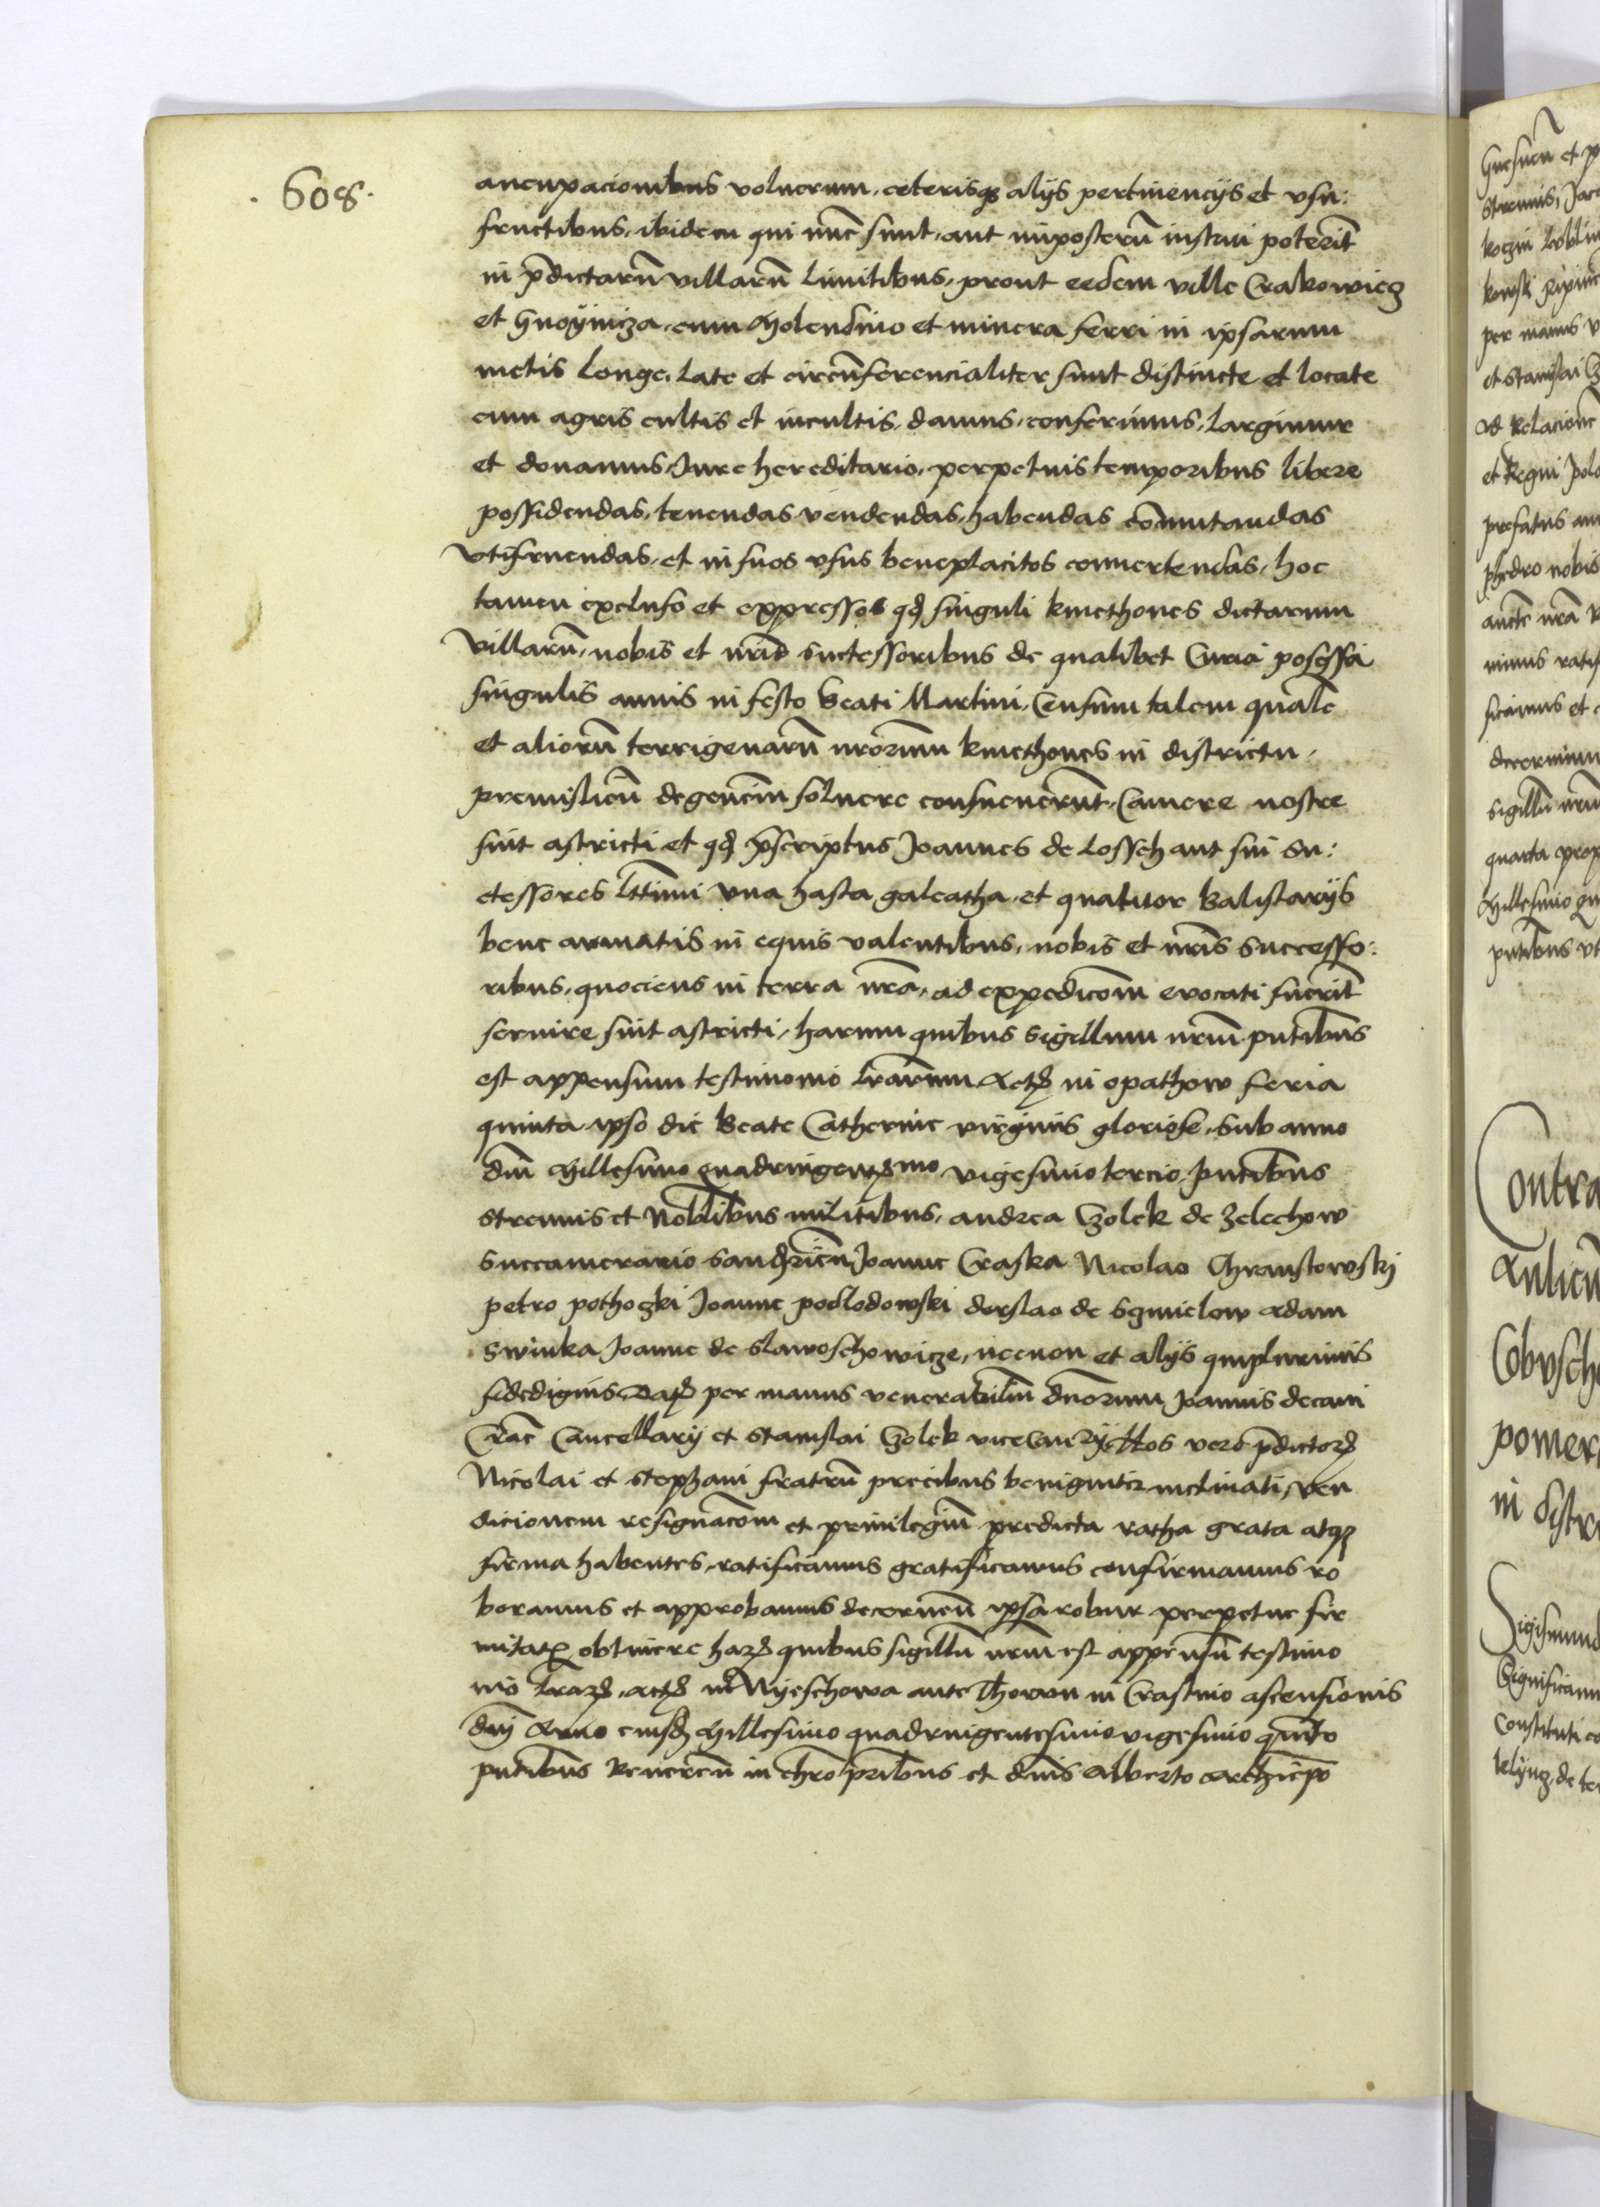 608.
aucupacionibus volucrum, ceterisq3 alijs pertinencijs et vsu:
fructibus, ibidem qui nūc sunt, aut imposterū institui poterīt
in p̄dictarū villarū limitibus, prout eedem ville Crakowiecz
et Gnoyniza, cum Molendino et minera ferri in ipsarum
metis longe, late et circūferencialiter sunt distincte et locate
cum agris cultis et incultis, damus, conferimus, largimur
et donamus, Jure hereditario, perpetuis temporibus libere
possidendas, tenendas vendendas, habendas cōmutandas
vtifruendas, et in suos vsus beneplacitos convertendas, hoc
tamen excluso et expresso qd singuli kmethones dictarum
villarū, nobis et nrīs suctessoribus de qualibet Curia posessa
singulis annis in festo Beati Martini, Censum talem qualē
et aliorū terrigenarū nrōrum kmethones in districtu,
premislień degeneīm soluere consueuerūt, Camere nostre
sint astricti et qd p̄scriptus Joannes de Lossch aut sui su:
ctessores lttīmi vna hasta galeatha, et quatuor Balistarijs
bene armatis in equis valentibus, nobis et nrīs successo:
ribus, quociens in terra nrā, ad expedicōm evocati fuerīt
seruire sint astricti, harum quibus sigillum nrūm pn̄tibus
est appensum testimonio lrārum Act in opathow feria
quinta ipso die Beate Catherine virginis gloriose, sub anno
dnī Millesimo quadringentesimo vigesimo tercio, pn̄tibus
strenuis et Noblībus militibus, andrea Czolek de Zelechow
succamerario sandr̄ień Joanne Craska Nicolao Chranstowskj
petro pothoczki Joanne podlodowski derslao de Sczmielow adam
Swinka Joanne de Slawoschowicze, necnon et alijs quamplurimis
fidedignis, Dat per manus venerabiliū dnōrum Joannis decani
Crac̄ Cancellarij et stanislai Czolek vicecancrij Nos vero p̄dictor
Nicolai et stephani fratrū precibus benignitr inclinati, ven
dicionem resignacōm et priuilegiū predicta ratha grata atq3
firma habentes, ratificamus gratificamus confirmamus ro
boramus et approbamus decerneñ ipsa robur perpetue fir
mitat obtinere har quibus sigillū nrūm est appensū testimo
nio lrār, act in Nyeschowa ante Thorun in Crastino ascensionis
dnī Anno eiusd Millesimo quadringentesimo vigesimo quīto
pn̄tibus Reuereñ in chrō prībus et dnīs Alberto Archiepō
Gnesneñ et p
strenuis, Jac
koczin lublin
kowski
per manus v
et stanislai Cz
ad Relacionē
et Regni Polo
prefatus an
phedro nobis
aucte nrā
nimus ratif
ficamus et
decernimu
sigillū nrūm
quarta prop
Millesimo qu
pn̄tibus vt
Contra
Aulicū
Cobysch
pomer
in distr
Sigismund
Significam
Constituti co
de te